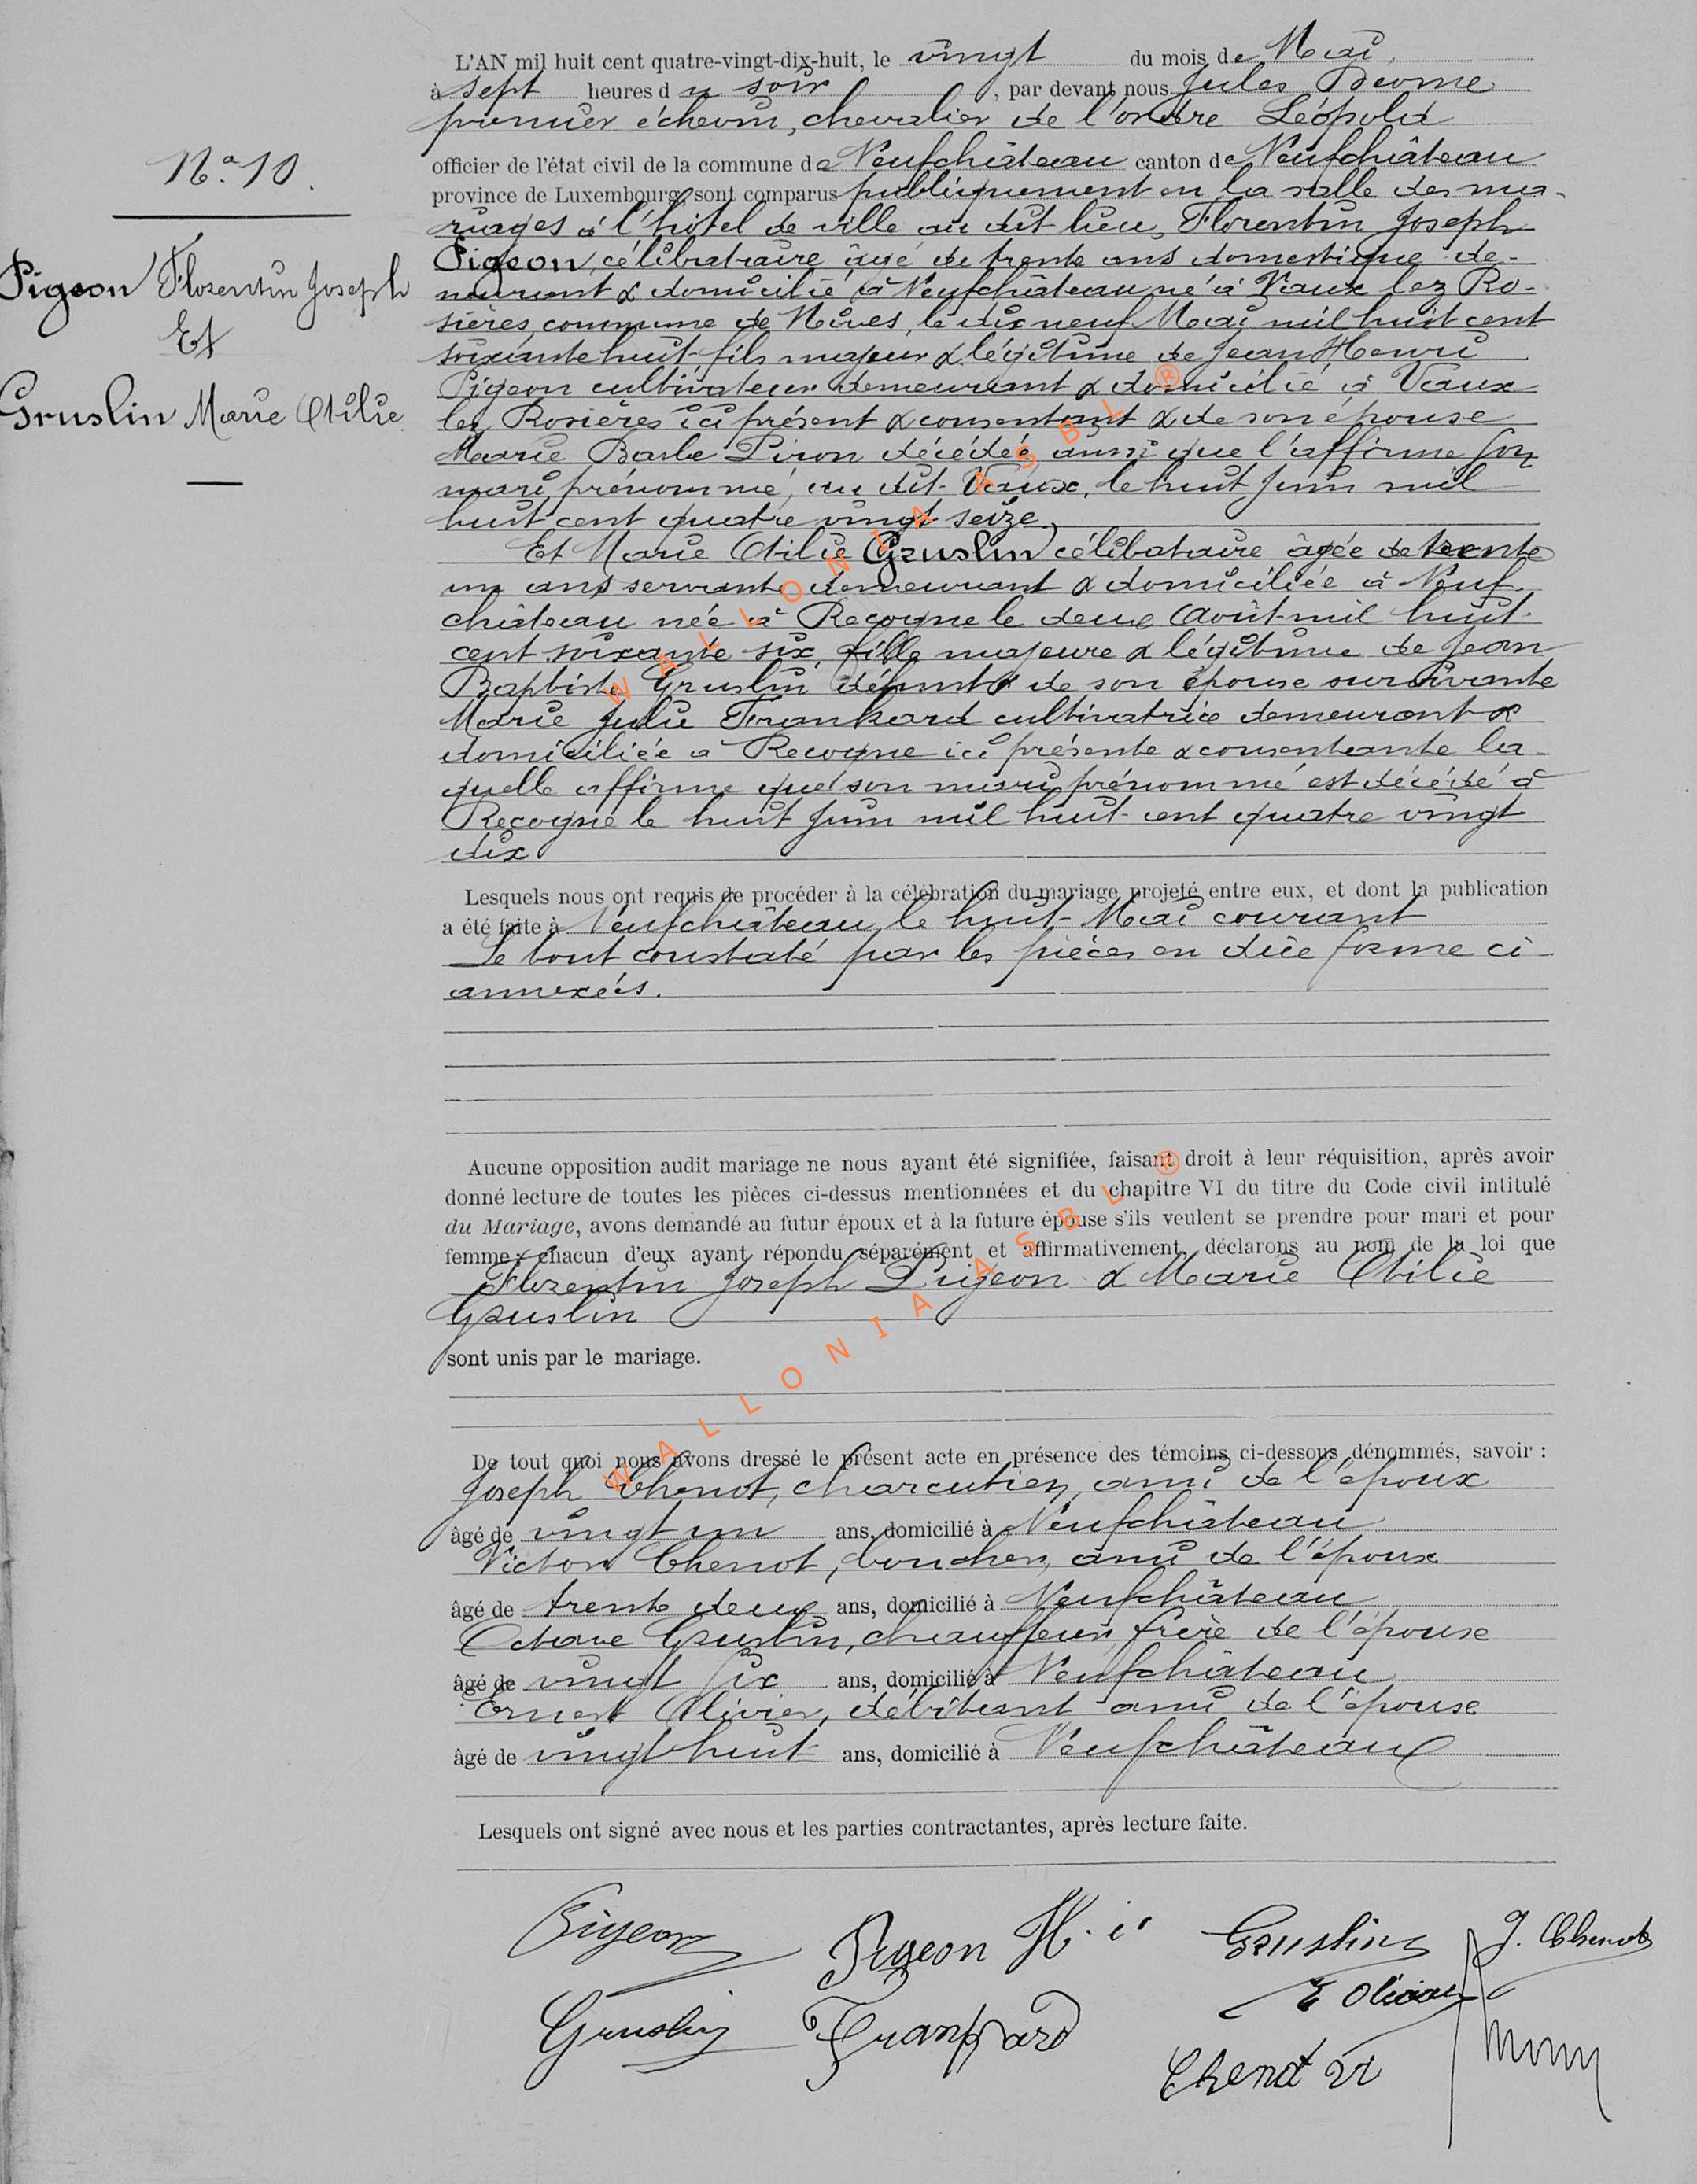 L'AN mil huit cent quatre-vingt-dix-huit, le vingt du mois de Mai,
à sept heures du soir, par devant nous Jules
premier échevin, chevalier de l'ordre Léopold
officier de l'état civil de la commune de Neufchâteau canton de Neufchâteau
province de Luxembourg, sont comparus publiquement en la salle des ma-
riages à l'hôtel de ville au dit lieu, Florentin Joseph
Pigeon, célibataire âgé de trente ans domestique de-
meurant & domicilié à Neufchâteau né à Vaux lez Ro-
sières, commune de Nives, le dix neuf Mai mil huit cent
soixante huit fils majeur & légitime de Jean Henri
Pigeon cultivateur demeurant & domicilié à Vaux
lez Rosières ici présent & consentant & de son épouse
Marie Barbe Piron décédée, ainsi que l'affirme son
mari prénommé, au dit Vaux, le huit Juin mil
huit cent quatre vingt seize.
Et Marie Otilie Gruslin célibataire âgée de trente
un ans servante demeurant & domiciliée à Neuf-
château née à Recogne le deux Août mil huit
cent soixante six, fille majeure & légitime de Jean
Baptiste Gruslin défunt & de son épouse survivante
Marie Julie Frankard cultivatrice demeurant &
domiciliée à Recogne ici présente & consentante la-
quelle affirme que son mari prénommé est décédé à
Recogne le huit Juin mil huit cent quatre vingt
dix
N° 10.
Pigeon Florentin Joseph
Et
Gruslin Marie Otilie
Lesquels nous ont requis de procéder à la célébration du mariage projeté entre eux, et dont la publication
a été faite à Neufchâteau, le huit Mai courant
Le tout constaté par les pièces en due forme ci-
annexées.
Aucune opposition audit mariage ne nous ayant été signifiée, faisant droit à leur réquisition, après avoir
donné lecture de toutes les pièces ci-dessus mentionnées et du chapitre VI du titre du Code civil intitulé
du Mariage, avons demandé au futur époux et à la future épouse s'ils veulent se prendre pour mari et pour
femme ; chacun d'eux ayant répondu séparément et affirmativement, déclarons au nom de la loi que
Florentin Joseph Pigeon & Marie Otilie
Gruslin
sont unis par le mariage.
De tout quoi nous avons dressé le présent acte en présence des témoins ci-dessous dénommés, savoir :
Joseph Chenot, charcutier, ami de l'époux
âgé de vingt un ans, domicilié à Neufchâteau
Victor Chenot, boucher, ami de l'époux
âgé de trente deux ans, domicilié à Neufchâteau
Octave Gruslin, chauffeur, frère de l'épouse
âgé de vingt six ans, domicilié à Neufchâteau
Ernest Olivier, débitant ami de l'épouse
âgé de vingt huit ans, domicilié à Neufchâteau
Lesquels ont signé avec nous et les parties contractantes, après lecture faite.
Pigeon Pigeon H. Gruslin J. Chenot
E Olivier
Gruslin Frankard
Chenot Vr
WALLONIA ASBL ®
WALLONIA ASBL ®